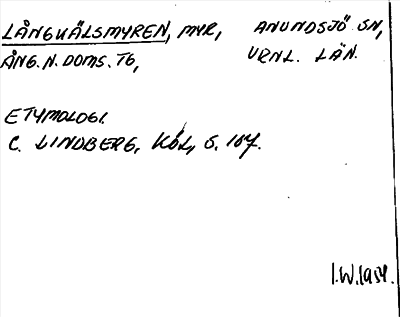 LÅNGHÄLSMYREN, MYR, ANUNDSJÖ SN,
ÅNG. N. DOMS. TG, VRNL. LÄN.
ETYMOLOGI.
C. LINDBERG, KÖL, S. 107.
I.W. 1954.